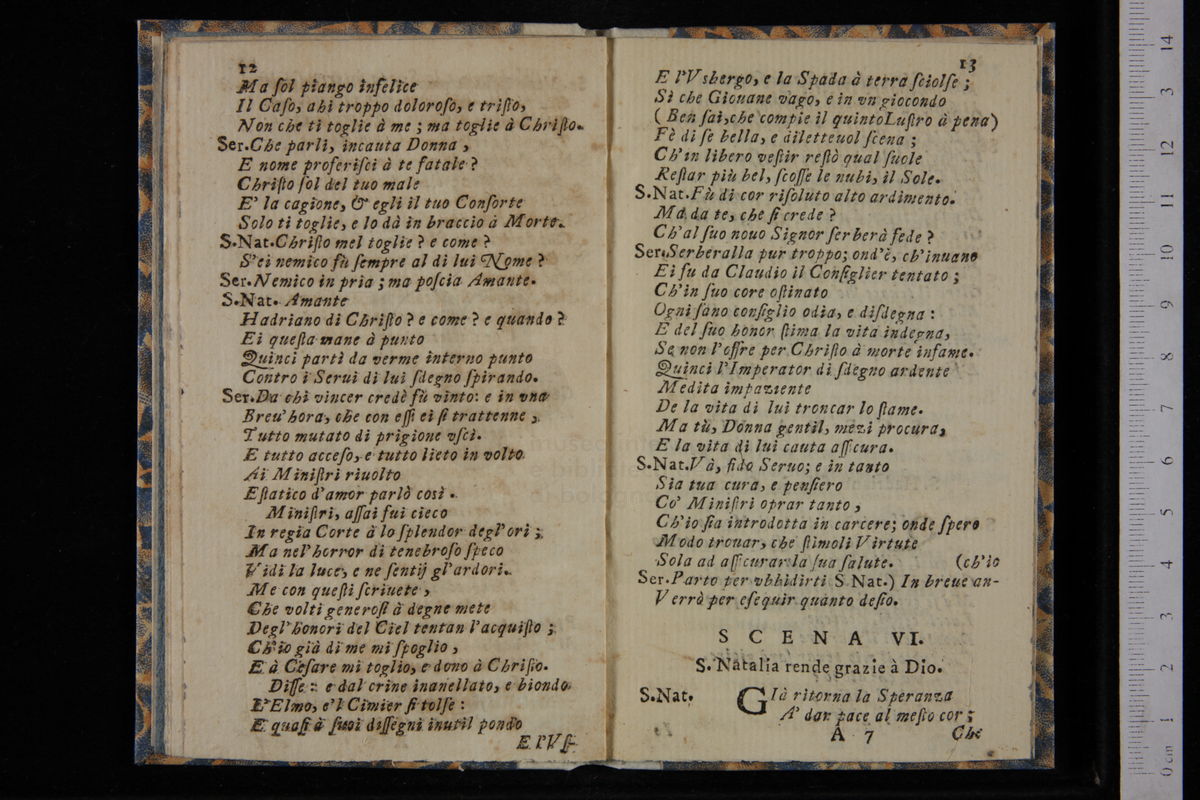 12
Ma ſol piango infelice
Il Caſo, ahi troppo doloroſo, e triſto,
Non che ti toglie à me ; ma toglie à Chriſto.
Ser.Che parli, incauta Donna ,
E nome proferiſci à te fatale ?
Chriſto ſol del tuo male
E' la cagione, & egli il tuo Conſorte
Solo ti toglie, e lo dà in braccio à Morte.
S.Nat.Chriſto mel toglie ? e come ?
S'ei nemico fù ſempre al di lui Nome ?
Ser.Nemico in pria ; ma poſcia Amante.
S.Nat. Amante
Hadriano di Chriſto ? e come ? e quando ?
Ei queſta mane à punto
Quinci partì da verme interno punto
Contro i Serui di lui ſdegno ſpirando.
Ser.Da chi vincer credè fù vinto: e in vna
Breu' hora, che con eſſi ei ſi trattenne ,
Tutto mutato di prigione vſcì.
E tutto acceſo, e tutto lieto in volto
Ai Miniſtri riuolto
Eſtatico d'amor parlò così .
Miniſtri, aſſai fui cieco
In regia Corte à lo ſplendor degl' ori ;
Ma nel' horror di tenebroſo ſpeco
Vidi la luce, e ne ſentij gl' ardori.
Me con queſti ſcriuete ,
Che volti generoſi à degne mete
Degl' honori del Ciel tentan l'acquiſto ;
Ch'io già di me mi ſpoglio ,
E à Ceſare mi toglio, e dono à Chriſto.
Diſſe : e dal crine inanellato, e biondo
L'Elmo, e'l Cimier ſi tolſe :
E quaſi à ſuoi diſſegni inutil pondo
E l'Vſ-
13
E l'Vsbergo, e la Spada à terra ſciolſe ;
Sì che Giouane vago, e in vn giocondo
( Ben ſai,che compie il quinto Luſtro à pena)
Fè di ſe bella, e diletteuol ſcena ;
Ch'in libero veſtir reſtò qual ſuole
Reſtar più bel, ſcoſſe le nubi, il Sole.
S.Nat.Fù di cor riſoluto alto ardimento.
Ma da te, che ſi crede ?
Ch'al ſuo nouo Signor ſerberà fede ?
Ser.Serberalla pur troppo; ond'è, ch'inuano
Ei fu da Claudio il Conſiglier tentato ;
Ch'in ſuo core oſtinato
Ogni ſano conſiglio odia, e diſdegna :
E del ſuo honor ſtima la vita indegna,
Se non l'offre per Chriſto à morte infame.
Quinci l'Imperator di ſdegno ardente
Medita impaziente
De la vita di lui troncar lo ſtame.
Ma tù, Donna gentil, mezi procura,
E la vita di lui cauta aſſicura.
S.Nat.Và, fido Seruo; e in tanto
Sia tua cura, e penſiero
Co' Miniſtri oprar tanto ,
Ch'io ſia introdotta in carcere; onde ſpero
Modo trouar, che ſtimoli Virtute
Sola ad aſſicurar la ſua ſalute. (ch'io
Ser.Parto per vbbidirti S Nat.) In breue an-
Verrò per eſequir quanto deſio.
SCENA VI.
S. Natalia rende grazie à Dio.
S.Nat. GIà ritorna la Speranza
A' dar pace al meſto cor ;
A 7 Che